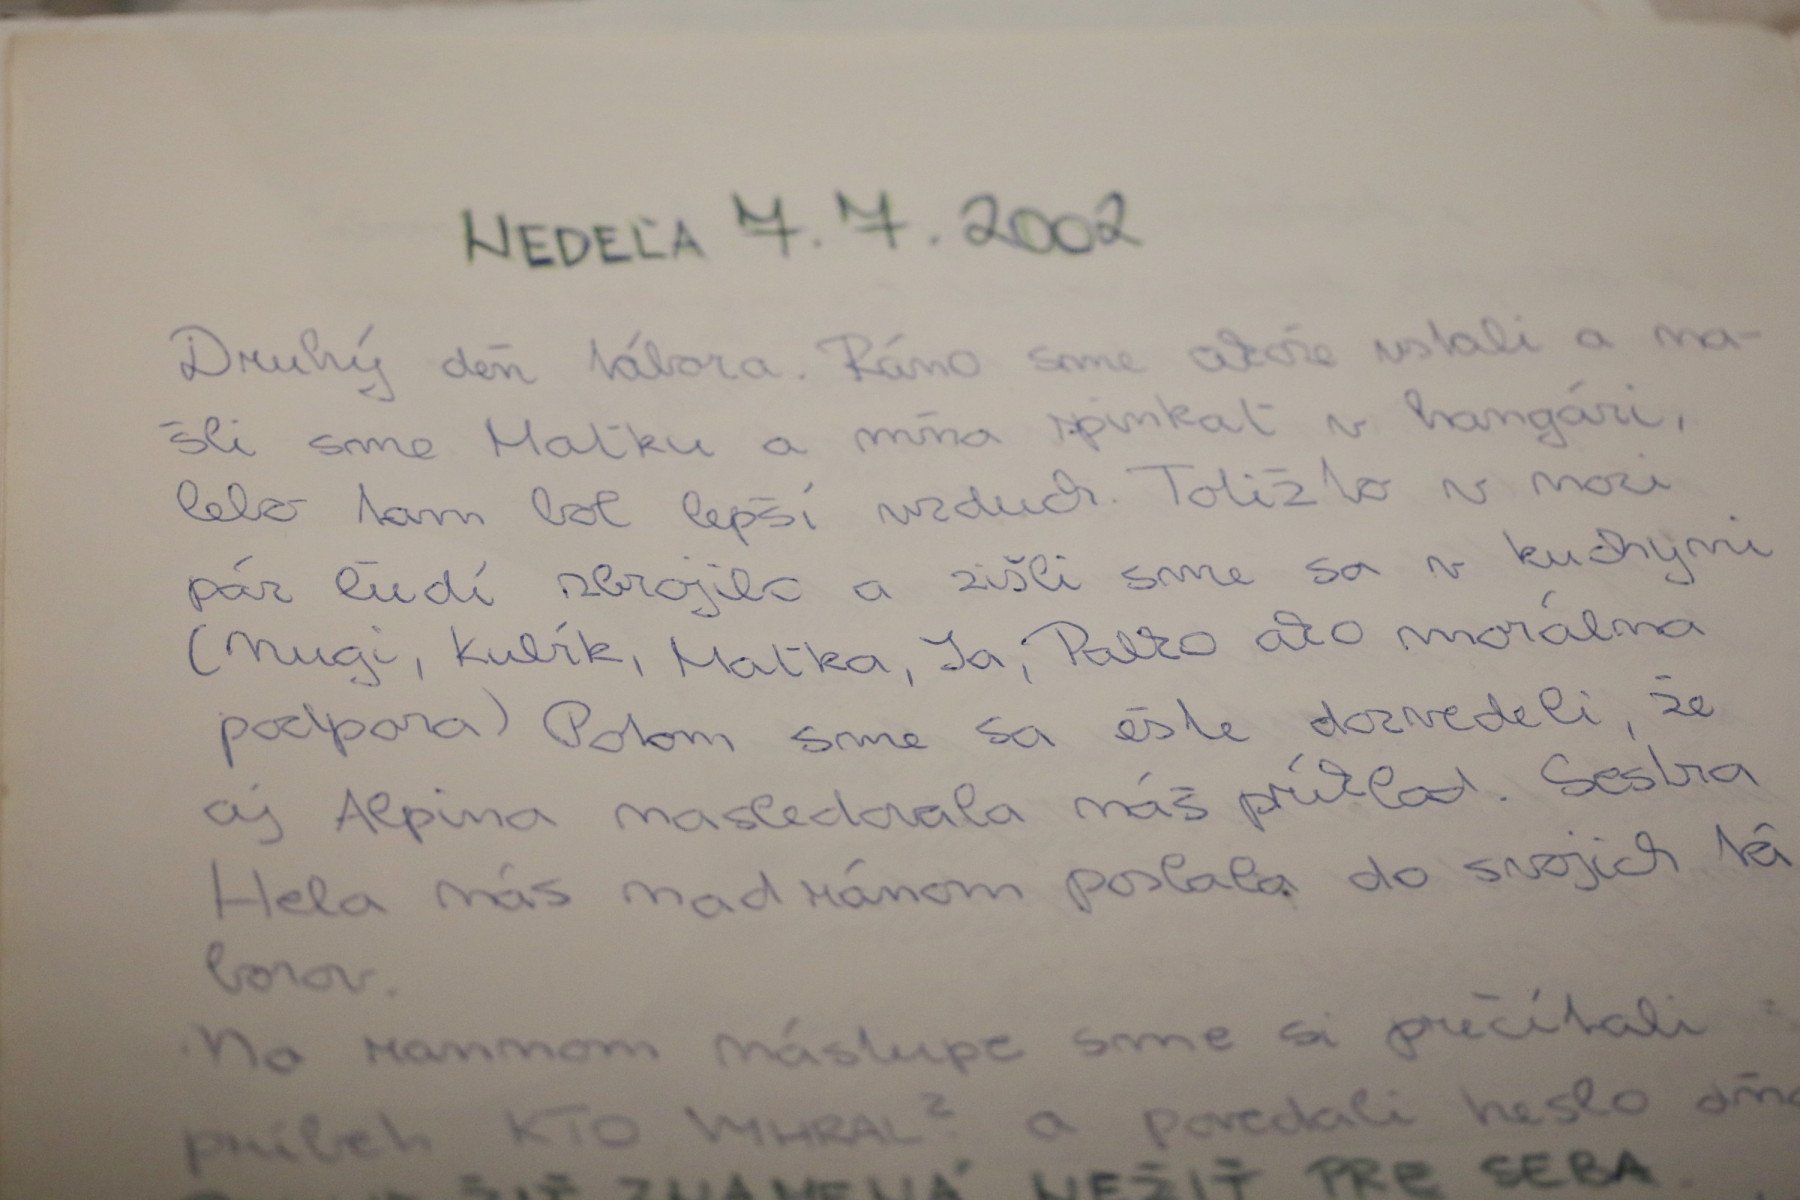 NEDEĽA 7.7.2002
Druhý deň tábora. Ráno sme skôr vstali a na-
šli sme Maťku a mňa spinkať v hangári,
lebo tam bol lepší vzduch. Totižto v noci
pár ľudí zbrojilo a zišli sme sa v kuchyni
(Nugi, Kubík, Maťka, Ja, Paľko ako morálna
podpora) Potom sme sa ešte dozvedeli, že
aj Alpina nasledovala náš príklad. Sestra
Hela nás nad ránom poslala do svojich tá
borov.
Na rannom nástupe sme si prečítali
príbeh KTO VYHRAL? a povedali heslo dňa
ŽIŤ ZNAMENÁ NEŽIŤ PRE SEBA